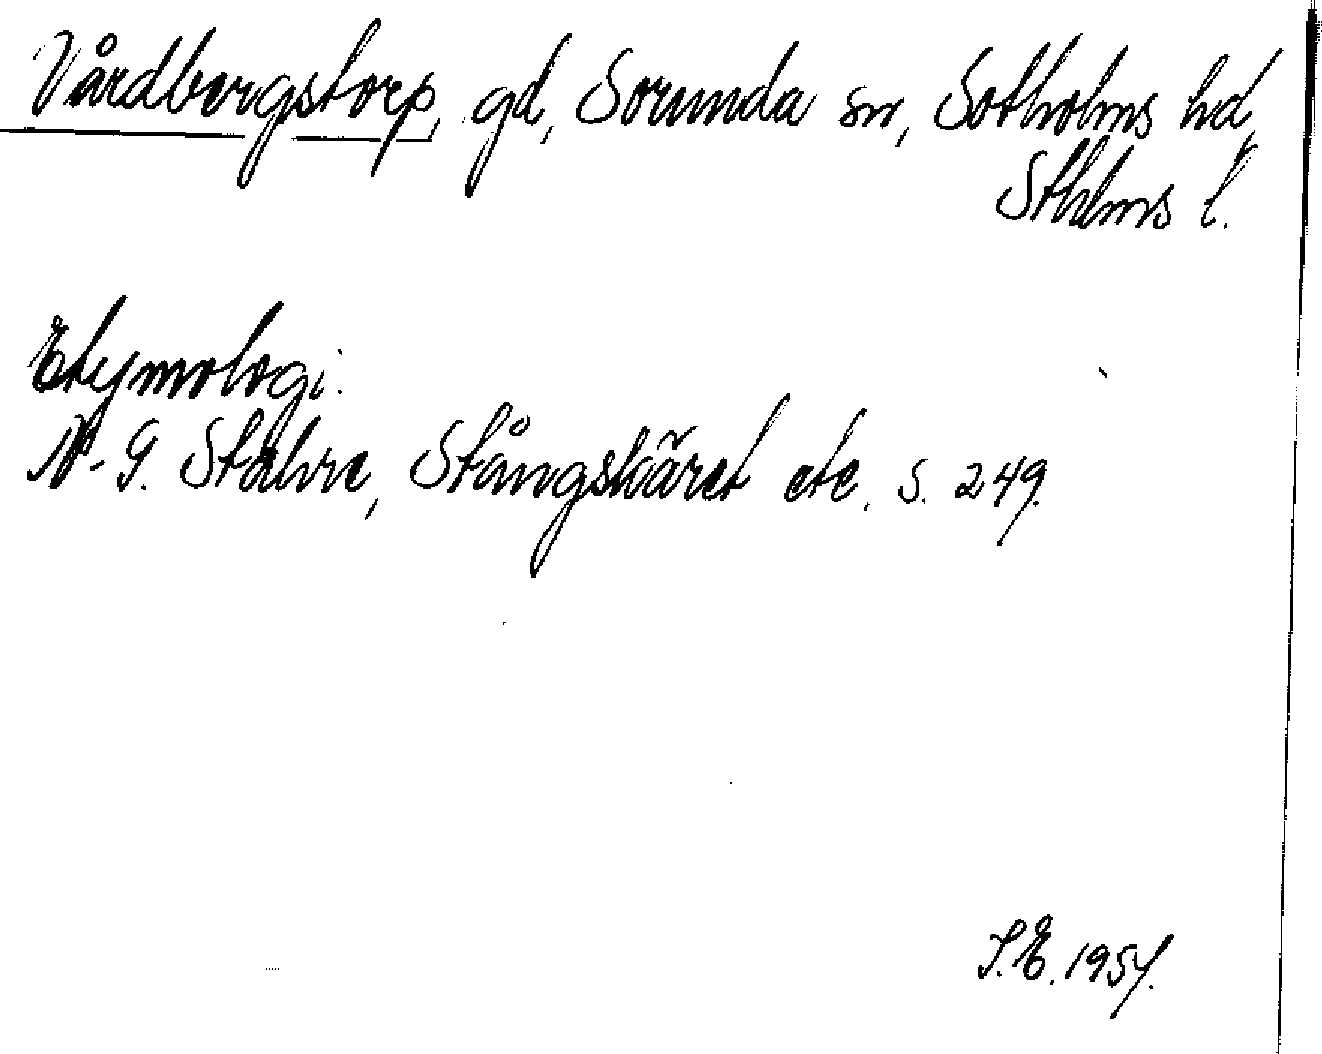 Vårdbergstorp, gd, Sorunda sn, Sotholms hd,
Sthlms l.
Etymologi:
N.-G. Stahre, Stångskäret etc. s. 249.
S.E. 1954.